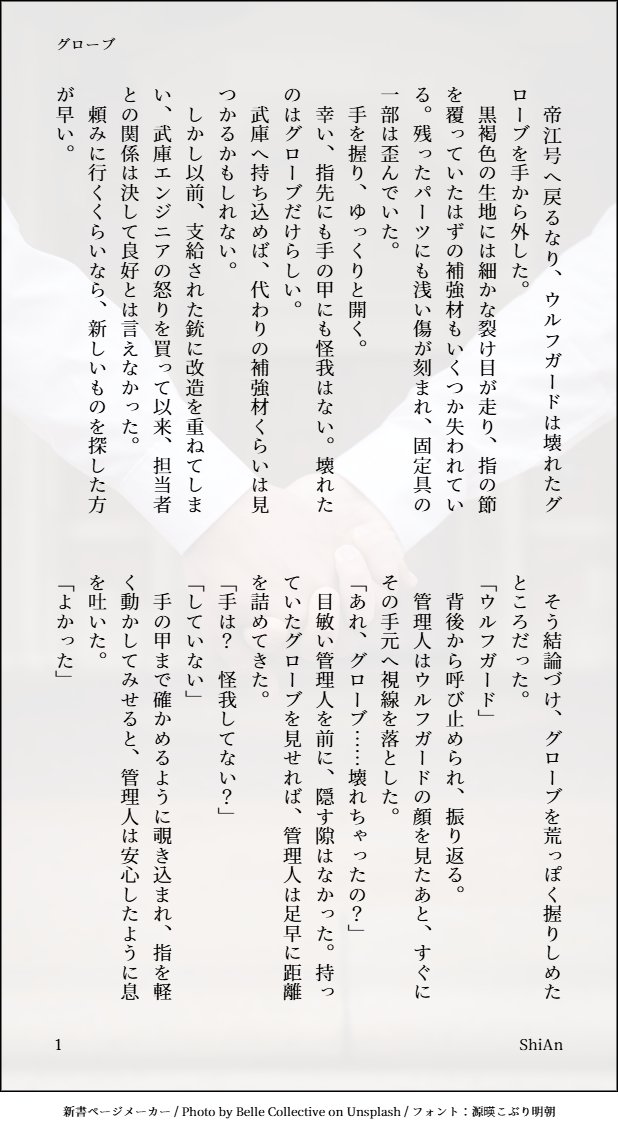 グローブ
　帝江号へ戻るなり、ウルフガードは壊れたグ
ローブを手から外した。
　黒褐色の生地には細かな裂け目が走り、指の節
を覆っていたはずの補強材もいくつか失われてい
る。残ったパーツにも浅い傷が刻まれ、固定具の
一部は歪んでいた。
　手を握り、ゆっくりと開く。
　幸い、指先にも手の甲にも怪我はない。壊れた
のはグローブだけらしい。
　武庫へ持ち込めば、代わりの補強材くらいは見
つかるかもしれない。
　しかし以前、支給された銃に改造を重ねてしま
い、武庫エンジニアの怒りを買って以来、担当者
との関係は決して良好とは言えなかった。
　頼みに行くくらいなら、新しいものを探した方
が早い。
　そう結論づけ、グローブを荒っぽく握りしめた
ところだった。
「ウルフガード」
　背後から呼び止められ、振り返る。
　管理人はウルフガードの顔を見たあと、すぐに
その手元へ視線を落とした。
「あれ、グローブ……壊れちゃったの？」
　目敏い管理人を前に、隠す隙はなかった。持っ
ていたグローブを見せれば、管理人は足早に距離
を詰めてきた。
「手は？　怪我してない？」
「していない」
　手の甲まで確かめるように覗き込まれ、指を軽
く動かしてみせると、管理人は安心したように息
を吐いた。
「よかった」
1
ShiAn
新書ページメーカー / Photo by Belle Collective on Unsplash / フォント：源暎こぶり明朝